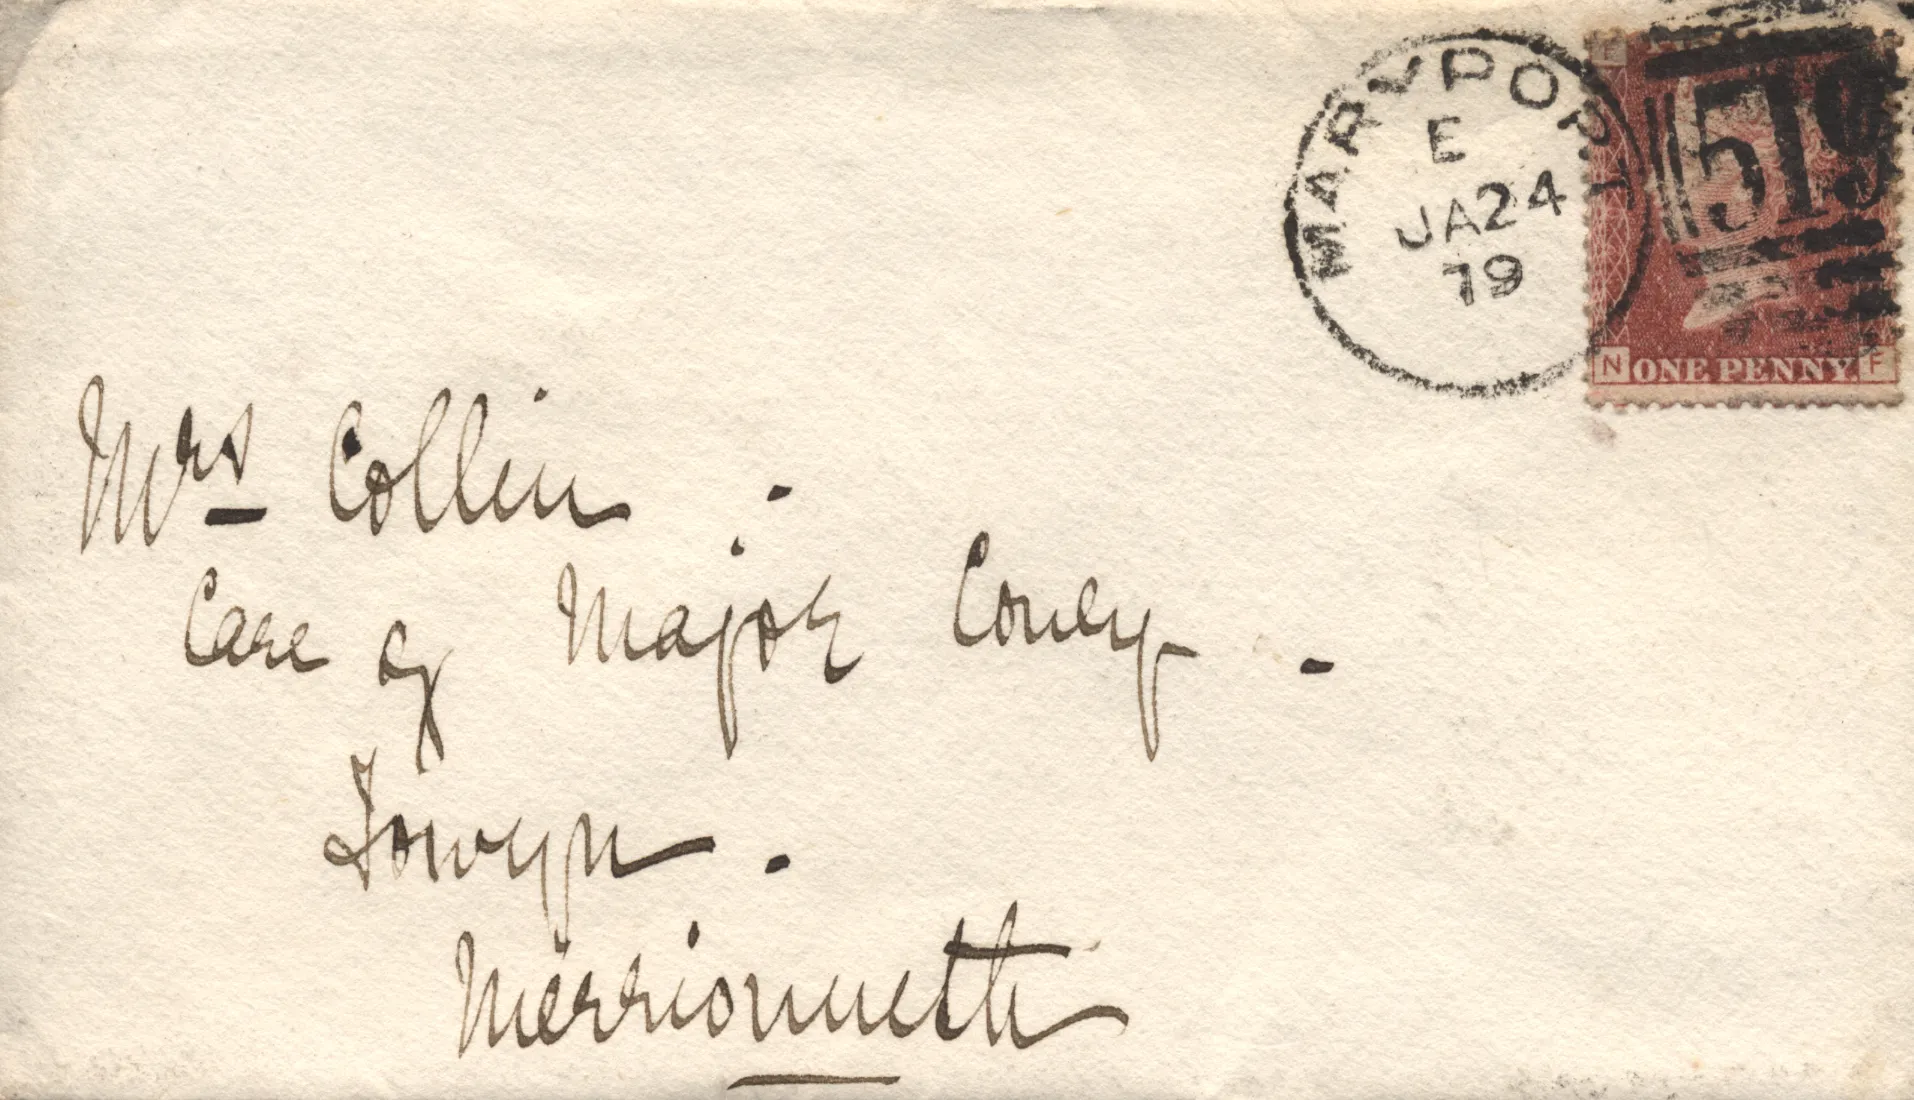 MARYPORT
E
JA24
79
519
F
N ONE PENNY. F
Mrs Collin.
Care of Major Coney.
Towyn.
Merrionneth